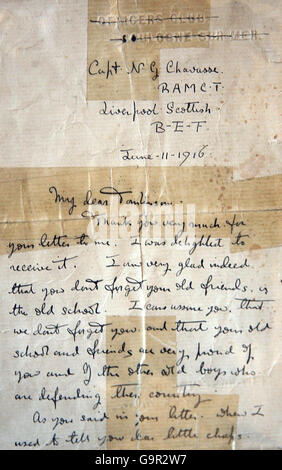 OFFICERS CLUB
BOULOGNE SUR MER
Capt. N G Chavasse.
RAMC.T.
Liverpool Scottish
B-E-F.
June-11-1916
My dear Tomlinson.
Thank you very much for
your letter to me. I was delighted to
receive it. I am very glad indeed
that you don't forget your old friends, or
the old school. I can assure you, that
we don't forget you and that your old
school and friends are very proud of
you and of the other old boys who
are defending their country.
As you said in your letter. when I
used to tell you dear little chaps.
alamy
Image ID: G9R2W7
www.alamy.com